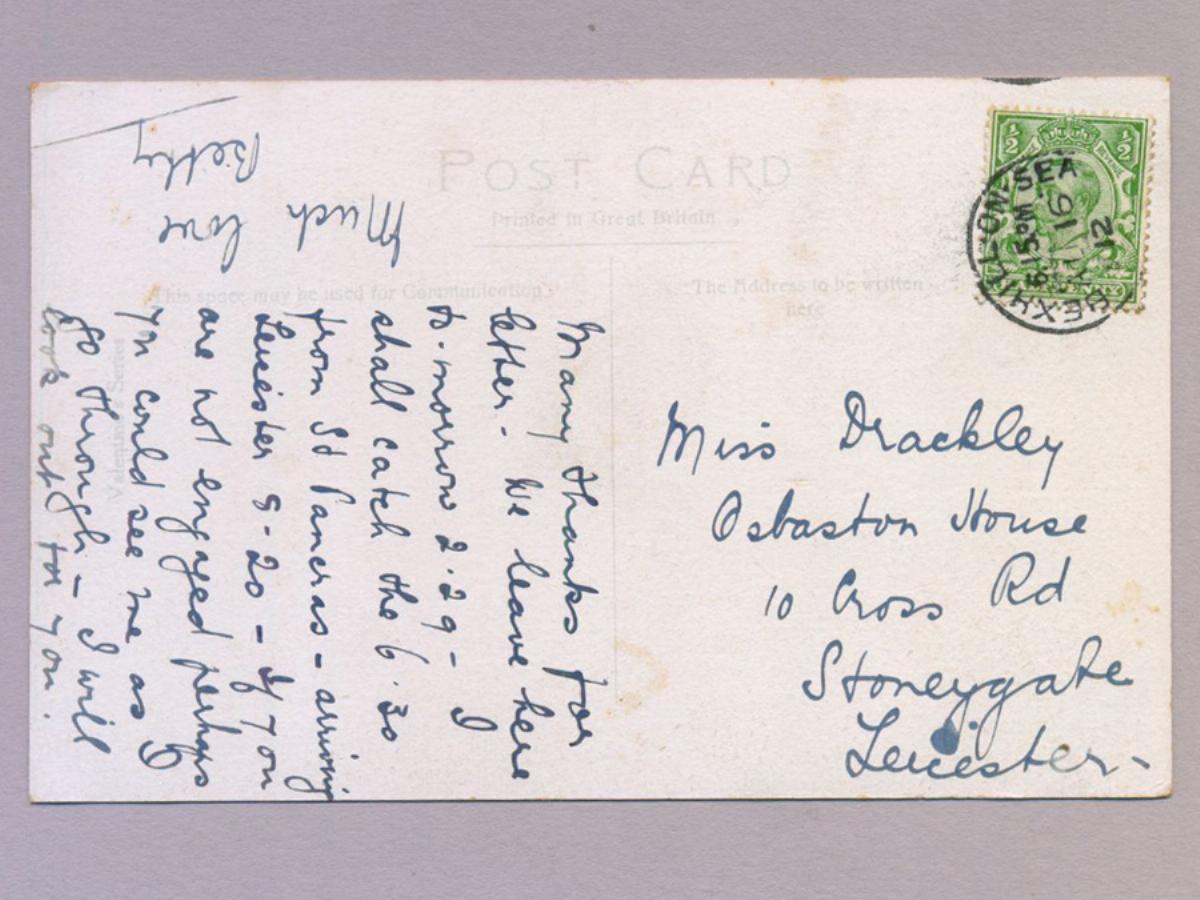 POST CARD
Printed in Great Britain
This space may be used for Communication
The Address to be written
here
Valentine's Series
½ ½
BEXHILL-ON-SEA
5 15 PM
16
12
Miss Drackley
Osbaston House
10 Cross Rd
Stoneygate
Leicester-
Many thanks for
letter - We leave here
to-morrow 2.29 - I
shall catch the 6.30
from St Pancras - arriving
Leicester 8-20 - If you
are not engaged perhaps
you could see me as I
go through - I will
look out for you.
Much
love
Betty